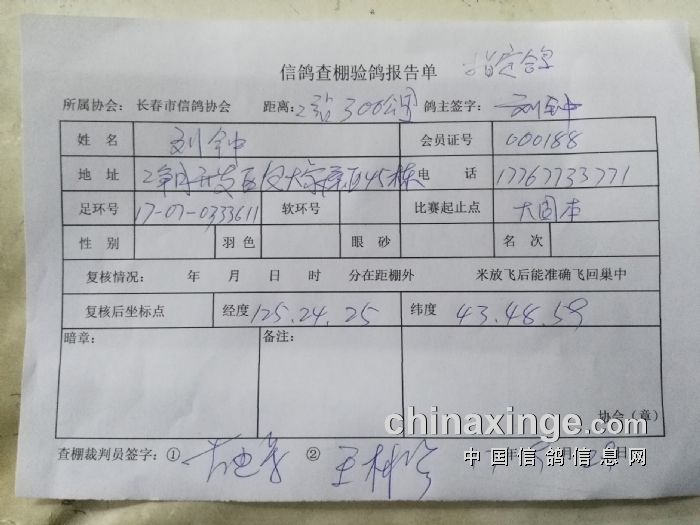 信鸽查棚验鸽报告单 指定鸽
所属协会: 长春市信鸽协会 距离: 2站300公里 鸽主签字: 刘钟
姓 名 刘钟 会员证号 000188
地 址 开发区 45栋 电 话 17767733771
足环号 17-07-0333611 软环号 比赛起止点 大固本
性 别 羽色 眼 砂 名 次
复核情况: 年 月 日 时 分在距棚外 米放飞后能准确飞回巢中
复核后坐标点 经度 125.24.25 纬度 43.48.59
暗章: 备注:
协会(章)
chinaxinge.com
查棚裁判员签字: ① ② 年 月 日
中国信鸽信息网